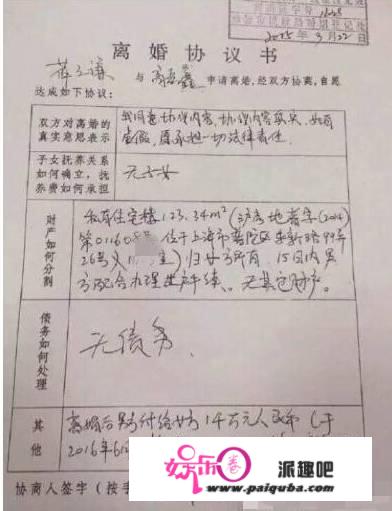 2015 9月22日
离婚协议书
薛之谦 与 高磊鑫 申请离婚,经双方协商,自愿
达成如下协议:
双方对离婚的
真实意思表示
我同意协议内容,协议内容真实,如有
虚假,愿承担一切法律责任.
子女抚养关系
如何确立,抚
养费如何承担
无子女
财产如何分割
私有住宅楼123.34m²(沪房地普字(2014)
第01160 位于上海市普陀区
26号 归女方所有,15日内男
方配合办理 手续. 无其它财产。
债务如何处理
无债务.
其他
离婚后男方付给女方1千万元人民币(于
2016年6
协商人签字(按手
娱乐圈 派趣吧
www.paiquba.com